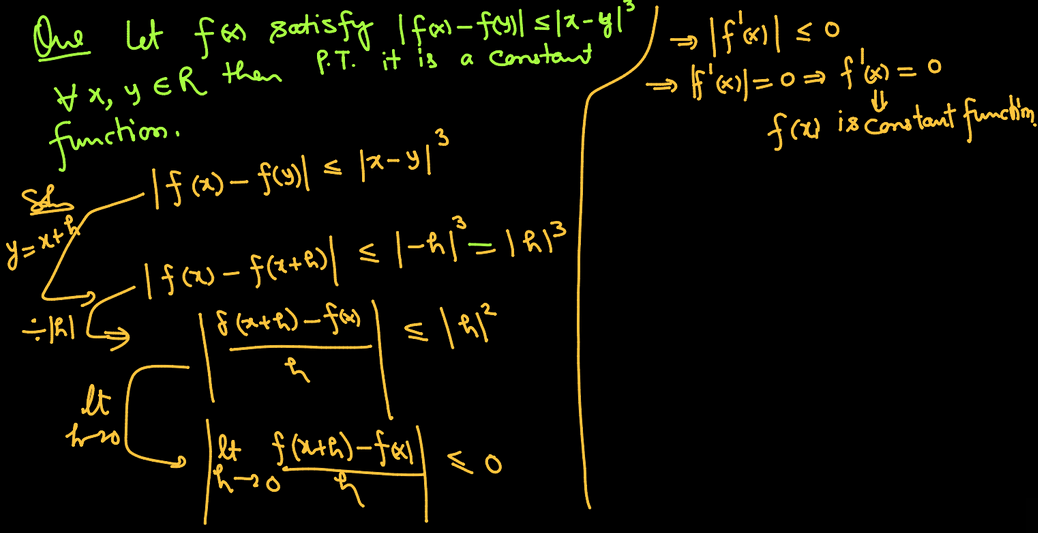 Que Let f(x) satisfy |f(x)-f(y)| ≤ |x-y|³
∀ x, y ∈ R then P.T. it is a constant
function.
Soln |f(x) - f(y)| ≤ |x-y|³
y=x+h
|f(x) - f(x+h)| ≤ |-h|³ = |h|³
÷|h| ⇒ |f(x+h)-f(x)/h| ≤ |h|²
lt h→0
|lt h→0 f(x+h)-f(x)/h| ≤ 0
⇒ |f'(x)| ≤ 0
⇒ |f'(x)| = 0 ⇒ f'(x) = 0
⇓
f(x) is constant function.